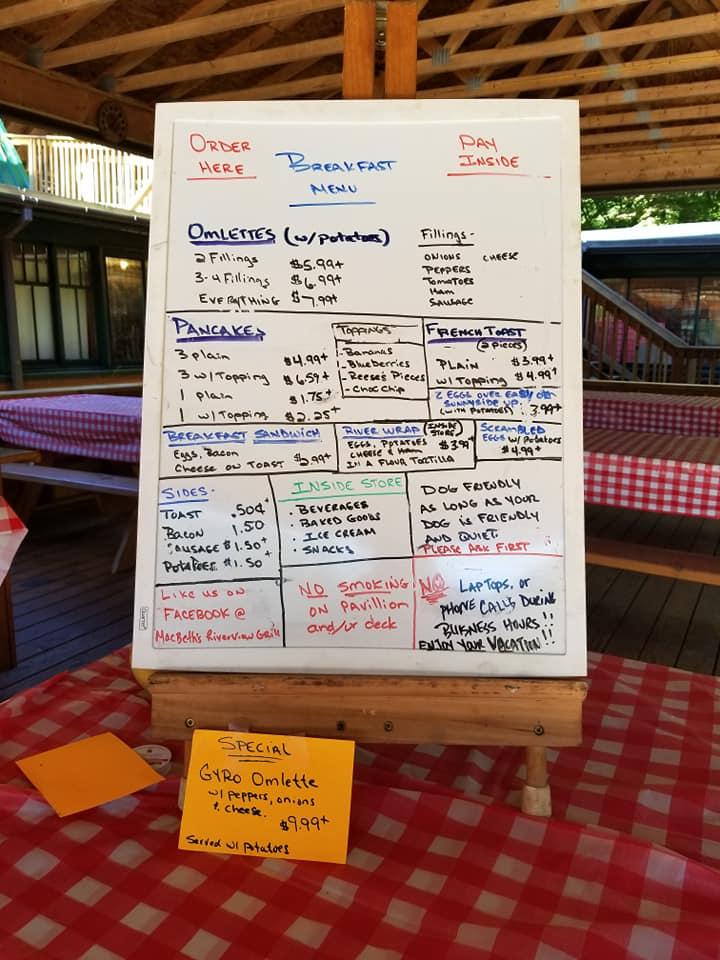 ORDER HERE
BREAKFAST MENU
PAY INSIDE
OMLETTES (w/potatoes)
2 Fillings $5.99+
3-4 Fillings $6.99+
EVERYTHING $7.99+
Fillings-
ONIONS CHEESE
PEPPERS
TOMATOES
HAM
SAUSAGE
PANCAKES
3 plain $4.99+
3 w/Topping $6.59+
1 plain $1.75+
1 w/Topping $2.25+
TOPPINGS
-Bananas
-Blueberries
-Reese's Pieces
-Choc Chip
FRENCH TOAST
(2 PIECES)
PLAIN $3.99+
w/Topping $4.99+
2 EGGS OVER EASY OR
SUNNYSIDE UP
(WITH POTATOES) 3.99+
BREAKFAST SANDWICH
Eggs, Bacon
Cheese on Toast $2.99+
RIVER WRAP (INSIDE STORE)
EGGS, POTATOES $3.99+
CHEESE & HAM
IN A FLOUR TORTILLA
SCRAMBLED
EGGS w/ Potatoes
$4.99+
SIDES-
TOAST .50¢+
BACON 1.50
SAUSAGE $1.50+
POTATOES $1.50+
INSIDE STORE
· BEVERAGES
· BAKED GOODS
· ICE CREAM
· SNACKS
DOG FRIENDLY
AS LONG AS YOUR
DOG is FRIENDLY
AND QUIET.
PLEASE ASK FIRST
LIKE US ON
FACEBOOK @
MacBeth's Riverview Grill
NO SMOKING
ON PAVILLION
and/or deck
NO LAPTOPS, or
PHONE CALLS DURING
BUISNESS HOURS!!
ENJOY YOUR VACATION!!
SPECIAL
GYRO Omlette
w/ peppers, onions
& cheese.
$9.99+
Served w/ potatoes